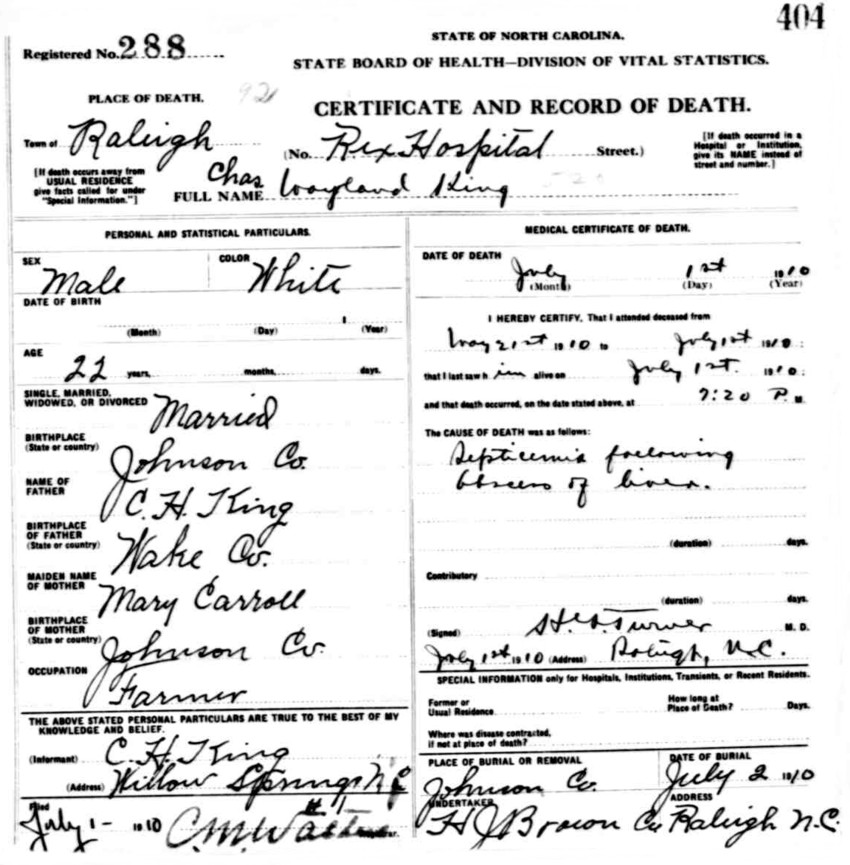 404
Registered No. 288
STATE OF NORTH CAROLINA.
STATE BOARD OF HEALTH—DIVISION OF VITAL STATISTICS.
PLACE OF DEATH. 92
CERTIFICATE AND RECORD OF DEATH.
Town of Raleigh (No. Rex Hospital Street.)
[If death occurred in a Hospital or Institution, give its NAME instead of street and number.]
[If death occurs away from USUAL RESIDENCE give facts called for under "Special Information."]
FULL NAME Chas Wayland King
PERSONAL AND STATISTICAL PARTICULARS.
SEX Male
COLOR White
DATE OF BIRTH
(Month) (Day) 1 (Year)
AGE
22 years, months, days.
SINGLE, MARRIED, WIDOWED, OR DIVORCED Married
BIRTHPLACE (State or country) Johnson Co.
NAME OF FATHER C. H. King
BIRTHPLACE OF FATHER (State or country) Wake Co.
MAIDEN NAME OF MOTHER Mary Carroll
BIRTHPLACE OF MOTHER (State or country) Johnson Co.
OCCUPATION Farmer
THE ABOVE STATED PERSONAL PARTICULARS ARE TRUE TO THE BEST OF MY
KNOWLEDGE AND BELIEF.
(Informant) C. H. King
(Address) Willow Springs N C
Filed July 1- 1910 C. M.
MEDICAL CERTIFICATE OF DEATH.
DATE OF DEATH July 1st 1910
(Month) (Day) (Year)
I HEREBY CERTIFY, That I attended deceased from
May 21st 1910 to July 1st 1910;
that I last saw h im alive on July 1st. 1910;
and that death occurred, on the date stated above, at 7:20 P. M.
The CAUSE OF DEATH was as follows:
Septicemia following
Abscess of liver.
(duration) days.
Contributory
(duration) days.
(Signed) Turner M. D.
July 1st 1910 (Address) Raleigh, N.C.
SPECIAL INFORMATION only for Hospitals, Institutions, Transients, or Recent Residents.
Former or Usual Residence
How long at Place of Death? Days.
Where was disease contracted,
if not at place of death?
PLACE OF BURIAL OR REMOVAL
Johnson Co.
DATE OF BURIAL
July 2 1910
UNDERTAKER
H J Brown Co
ADDRESS
Raleigh N.C.